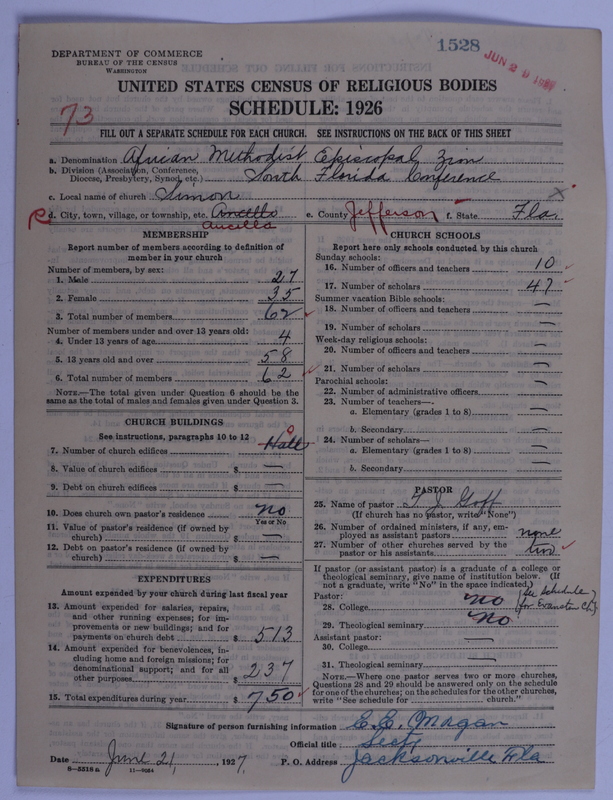 1528
JUN 2 9 1927
DEPARTMENT OF COMMERCE
BUREAU OF THE CENSUS
WASHINGTON
UNITED STATES CENSUS OF RELIGIOUS BODIES
SCHEDULE: 1926
73
FILL OUT A SEPARATE SCHEDULE FOR EACH CHURCH. SEE INSTRUCTIONS ON THE BACK OF THIS SHEET
a. Denomination African Methodist Episcopal Zion
b. Division (Association, Conference, Diocese, Presbytery, Synod, etc.) South Florida Conference
c. Local name of church Simon
d. City, town, village, or township, etc. Ancello e. County Jefferson f. State Fla.
Aucilla
MEMBERSHIP
Report number of members according to definition of
member in your church
Number of members, by sex:
1. Male 27
2. Female 35
3. Total number of members 62
Number of members under and over 13 years old:
4. Under 13 years of age 4
5. 13 years old and over 58
6. Total number of members 62
NOTE.—The total given under Question 6 should be
same as the total of males and females given under Question 3.
CHURCH BUILDINGS
See instructions, paragraphs 10 to 12
7. Number of church edifices Hall
8. Value of church edifices $ —
9. Debt on church edifices $ —
10. Does church own pastor's residence no
Yes or No
11. Value of pastor's residence (if owned by
church) $ —
12. Debt on pastor's residence (if owned by
church) $ —
EXPENDITURES
Amount expended by your church during last fiscal year
13. Amount expended for salaries, repairs,
and other running expenses; for im-
provements or new buildings; and for
payments on church debt $ 513
14. Amount expended for benevolences, in-
cluding home and foreign missions; for
denominational support; and for all
other purposes $ 237
15. Total expenditures during year $ 750
CHURCH SCHOOLS
Report here only schools conducted by this church
Sunday schools:
16. Number of officers and teachers 10
17. Number of scholars 47
Summer vacation Bible schools:
18. Number of officers and teachers —
19. Number of scholars —
Week-day religious schools:
20. Number of officers and teachers —
21. Number of scholars —
Parochial schools:
22. Number of administrative officers —
23. Number of teachers—
a. Elementary (grades 1 to 8) —
b. Secondary —
24. Number of scholars—
a. Elementary (grades 1 to 8) —
b. Secondary —
PASTOR
25. Name of pastor T. J. Goff
(If church has no pastor, write "None")
26. Number of ordained ministers, if any, em-
ployed as assistant pastors none
27. Number of other churches served by the
pastor or his assistants two
If pastor (or assistant pastor) is a graduate of a college or
theological seminary, give name of institution below. (If
not a graduate, write "No" in the space indicated.)
Pastor:
28. College no (See Schedule
for Evanston Ch.)
29. Theological seminary No
Assistant pastor:
30. College —
31. Theological seminary —
NOTE.—Where one pastor serves two or more churches,
Questions 28 and 29 should be answered only on the schedule
for one of the churches; on the schedules for the other churches,
write "See schedule for church."
Signature of person furnishing information
Official title
Date June 21, 1927. P. O. Address Jacksonville Fla
8—5518 a 11—9054